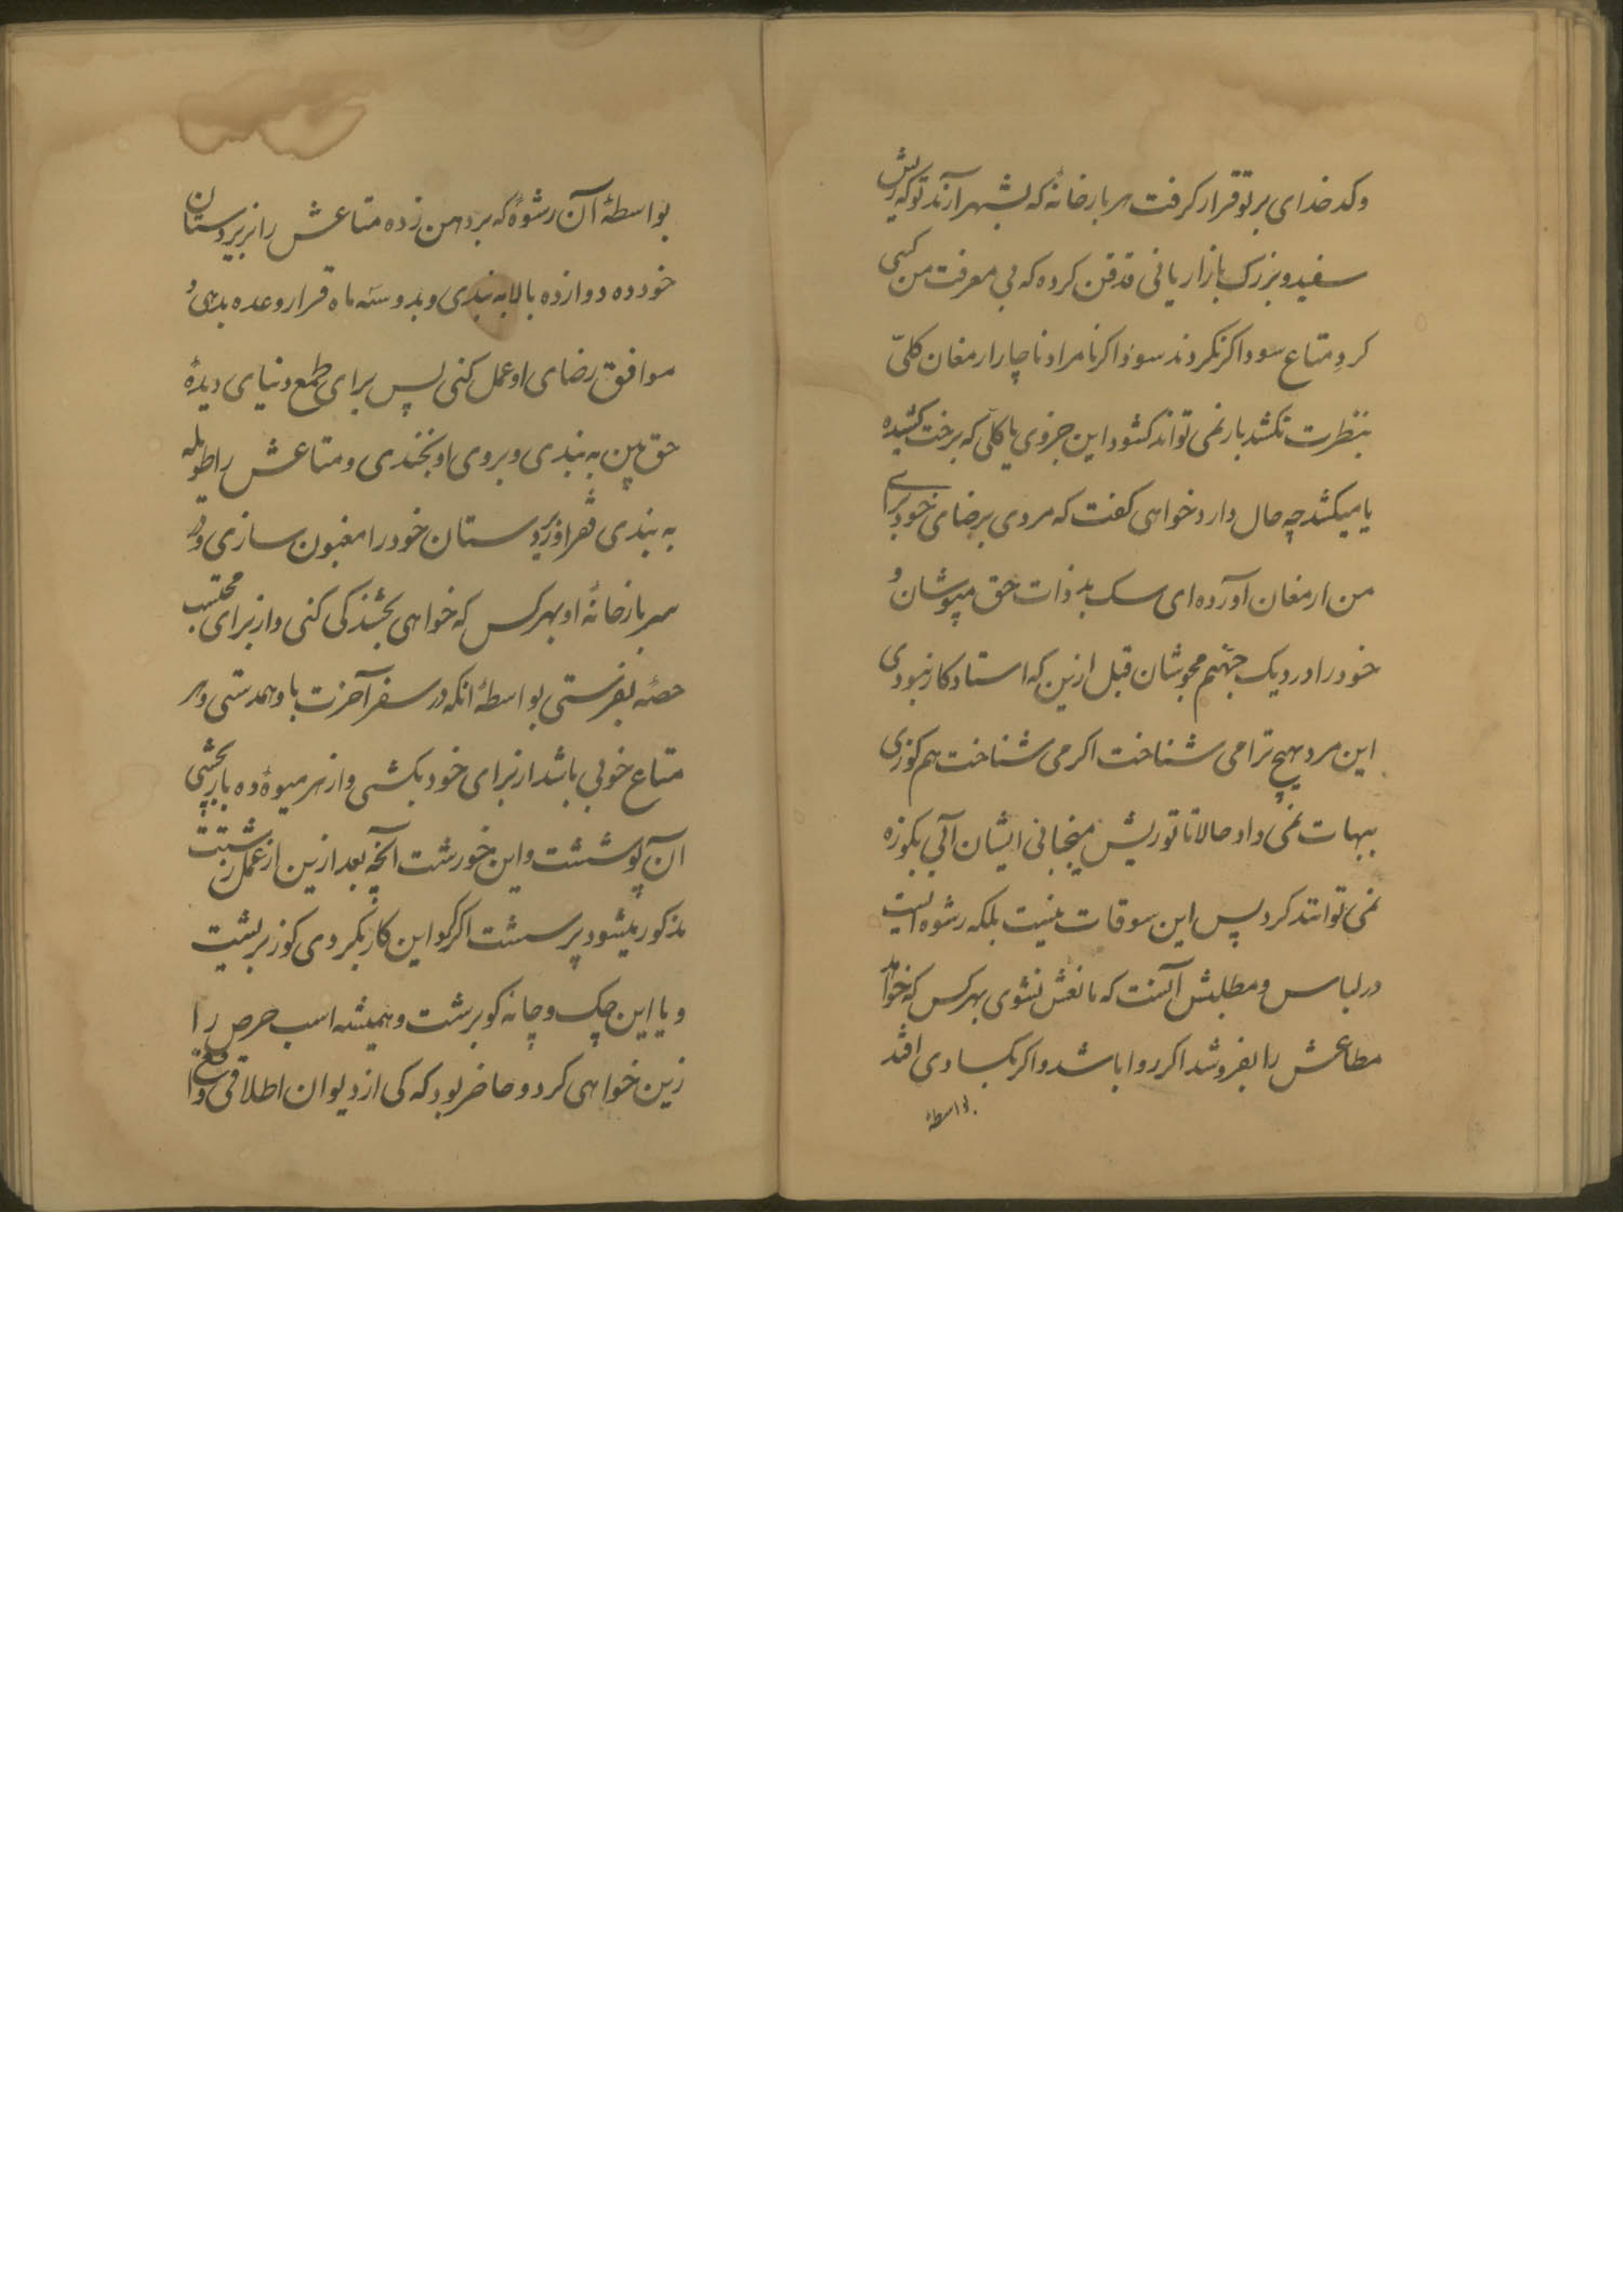 وکدخدای برتو قرار کرفت هر بارخانهٔ که بشهر آرند تو که ریش
سفید و بزرک بازاریانی قدقن کرده که بی معرفت من کسی
کرد متاع سوداکر نکردند سوداکر نامراد ناچار ارمغان کلیّ
بنظرت نکشد بار نمی تواند کشود این جزوی یا کلی که برخت کشیده
یا میکشد چه حال دارد خواهی کفت که مردی برضای خود برای
من ارمغان آورده ای سک بد ذات حق مپوشان و
خود را در دیک جهنم مجوشان قبل ازین که استاد کار نبودی
این مرد هیچ ترا می شناخت اکر می شناخت هم کوزی
ببهات نمی داد حالا تا تو ریش میجبانی ایشان آبی بکوزه
نمی توانند کرد پس این سوقات نیست بلکه رشوه ایست
در لباس و مطلبش آنست که مانعش نشوی بهر کس که خواهد
مطاعش را بفروشد اکر روا باشد و اکر بکسادی افتد
بواسطهٔ
بواسطهٔ آن رشوهٔ که بر دهن زده متاعش را بزیردستان
خود ده دوازده بالا به بندی و بدو سه ماه قرار وعده بدهی و
موافق رضای او عمل کنی پس برای طمع دنیای دیدهٔ
حق بین به بندی و بروی او بخندی و متاعش را طویله
به بندی قهرا و زیردستان خود را مغبون سازی و در
سر بارخانهٔ او بهر کس که خواهی بخشندکی کنی و از برای محتسب
حصهٔ بفرستی بواسطهٔ انکه در سفر آخرت با او همدستی و هر
متاع خوبی باشد از برای خود بکشی و از هر میوهٔ ده بار بخشی
آن پوششت و این خورشت آنچه بعد ازین از عمل زشتت
مذکور میشود پرسشت اکر کو این کار نکردی کوز بریشت
و یا این چک و چانه کو برشت و همیشه اسب حرص را
زین خواهی کرد و حاضر بود که کی از دیوان اطلاقی واقع